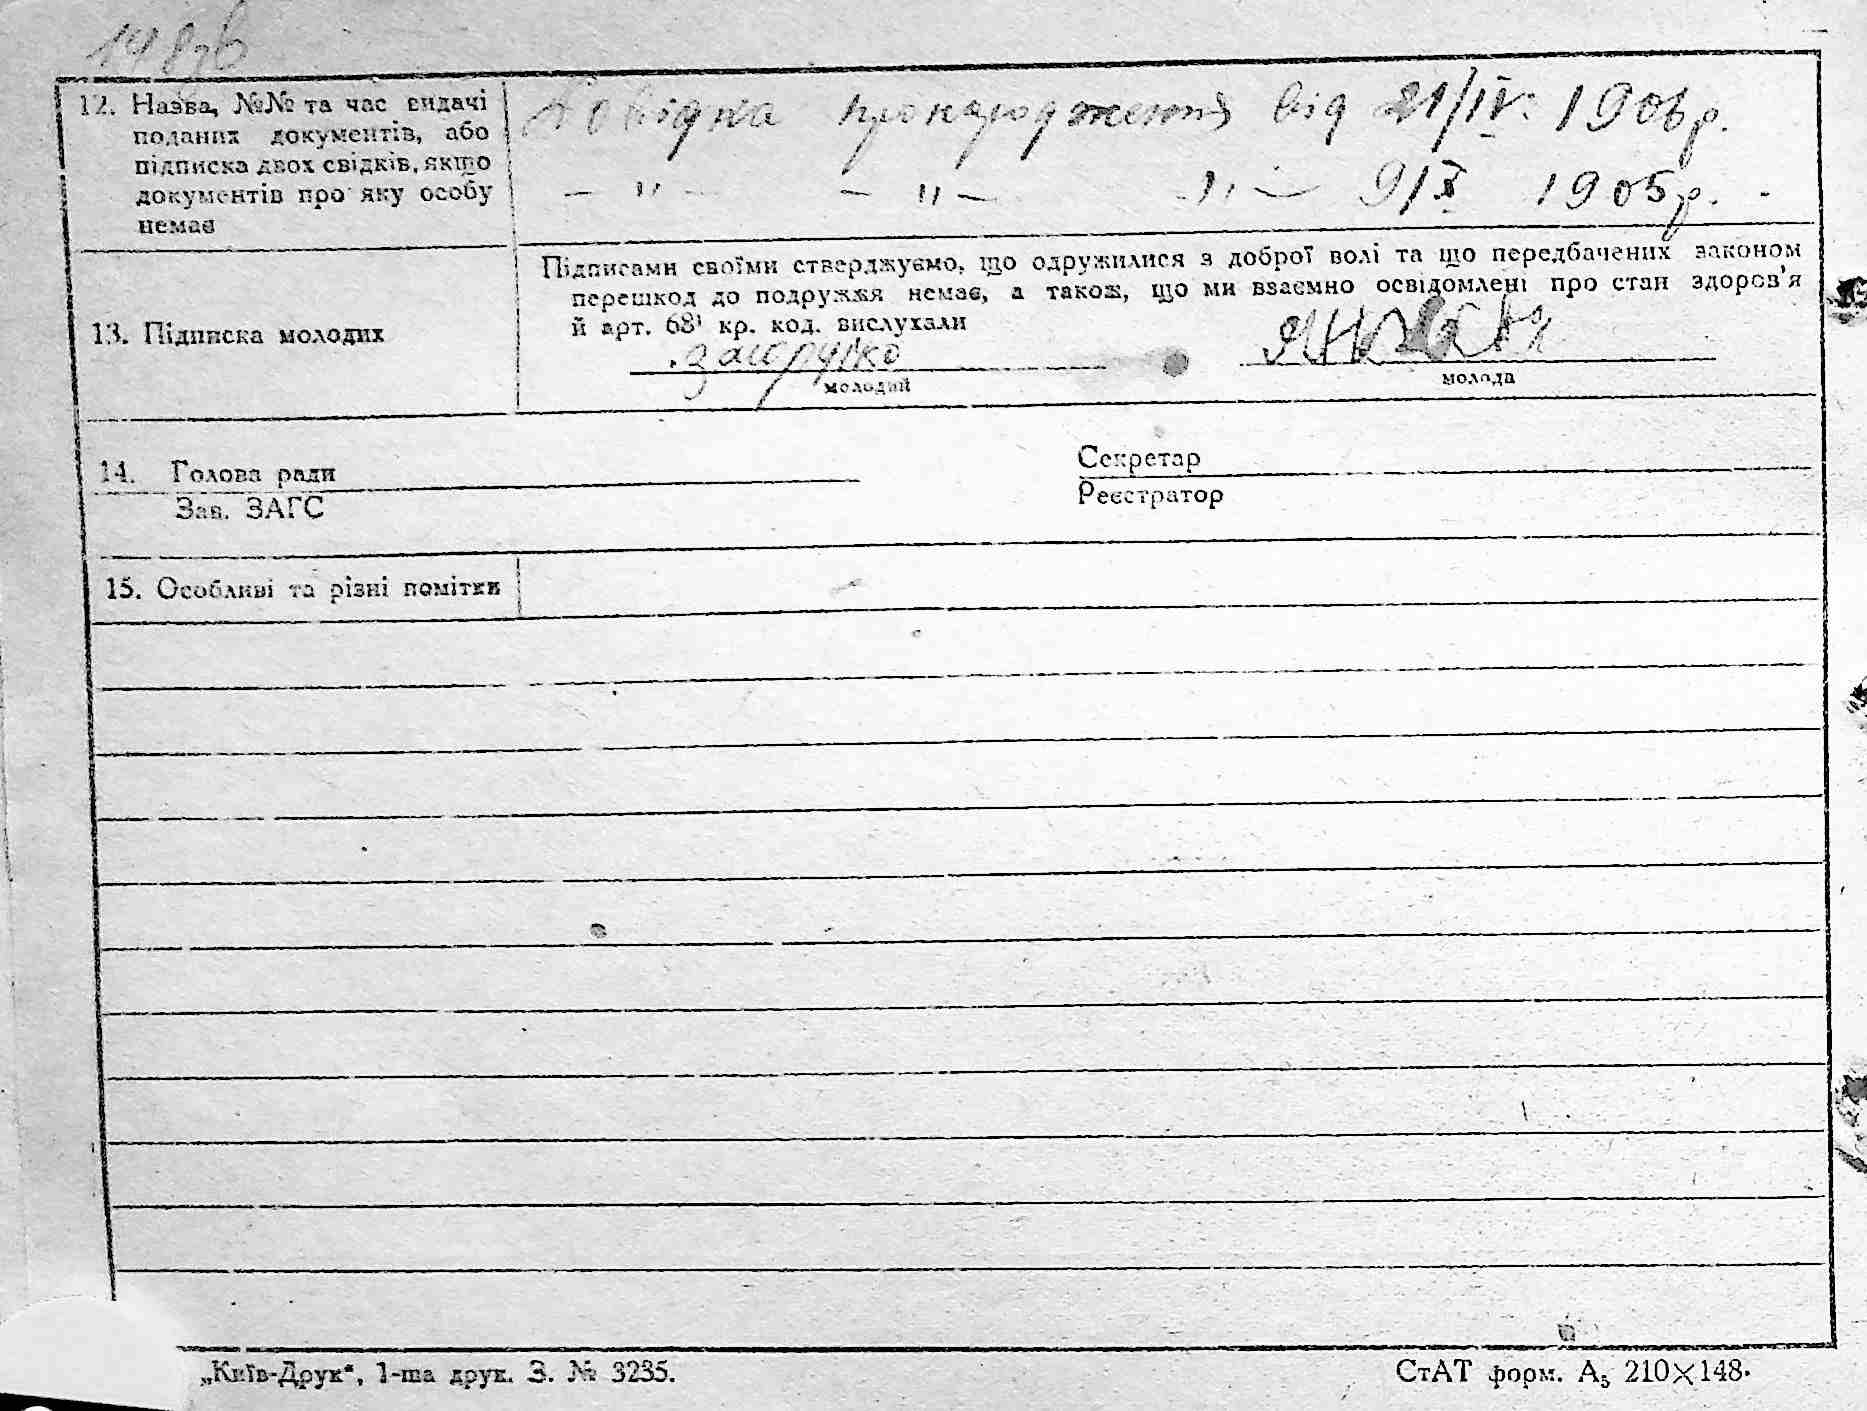 148зв
12. Назва, №№ та час видачі
поданих документів, або
підписка двох свідків, якщо
документів про яку особу
немає
Довідка про народження від 21/IV. 1906р.
— " — — " — " — 9/X 1905р. -
Підписами своїми стверджуємо, що одружилися з доброї волі та що передбачених законом
перешкод до подружжя немає, а також, що ми взаємно освідомлені про стан здоров'я
й арт. 68¹ кр. код. вислухали
13. Підписка молодих
молодий
молода
14. Голова ради
Зав. ЗАГС
Секретар
Реєстратор
15. Особливі та різні помітки
„Київ-Друк", 1-ша друк. З. № 3235.
СтАТ форм. А₅ 210×148.